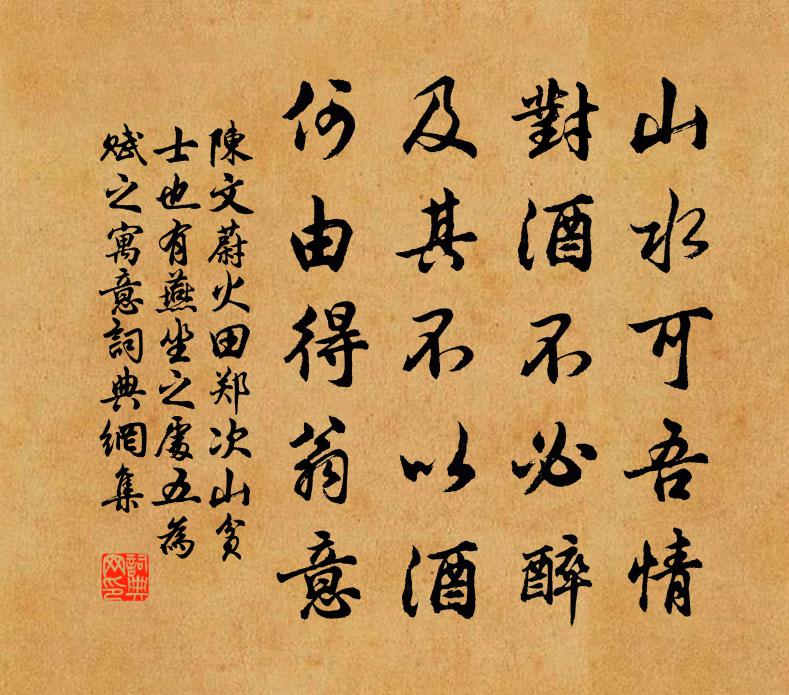 山水可吾情
對酒不必醉
及其不以酒
何由得翁意
陳文蔚火田郑次山贫
士也有燕坐之處五為
赋之寓意詞典網集
詞典网印